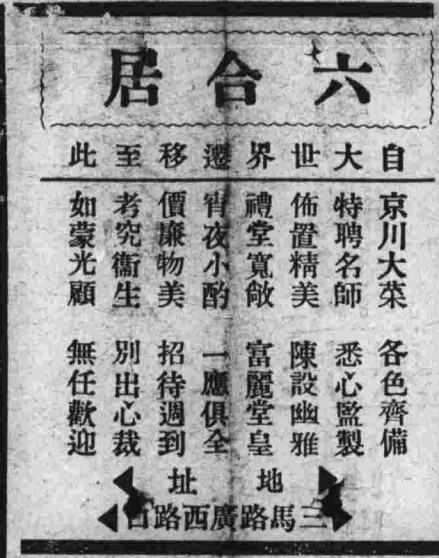 六合居
自大世界遷移至此
京川大菜 各色齊備
特聘名師 悉心監製
佈置精美 陳設幽雅
禮堂寬敞 富麗堂皇
宵夜小酌 一應俱全
價廉物美 招待週到
考究衞生 別出心裁
如蒙光顧 無任歡迎
地址
三馬路廣西路口